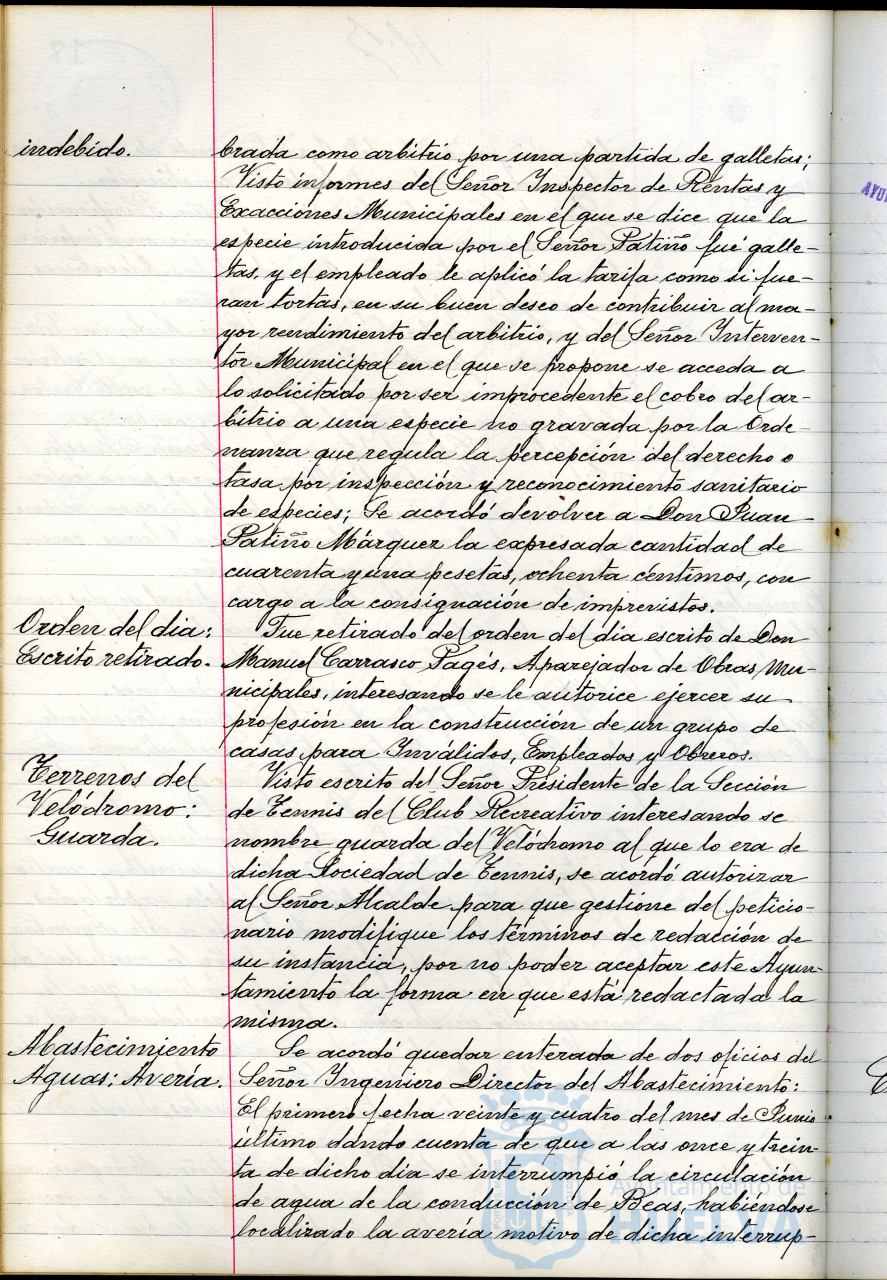 indebido.
brada como arbitrio por una partida de galletas;
Visto informes del Señor Inspector de Rentas y
Exacciones Municipales en el que se dice que la
especie introducida por el Señor Patiño fué galle-
tas, y el empleado le aplicó la tarifa como si fue-
ran tortas, en su buen deseo de contribuir al ma-
yor rendimiento del arbitrio, y del Señor Interven-
tor Municipal en el que se propone se acceda a
lo solicitado por ser improcedente el cobro del ar-
bitrio a una especie no gravada por la Orde-
nanza que regula la percepción del derecho o
tasa por inspección y reconocimiento sanitario
de especies; Se acordó devolver a Don Juan
Patiño Márquez la expresada cantidad de
cuarenta y una pesetas, ochenta céntimos, con
cargo a la consignación de imprevistos.
Orden del dia:
Escrito retirado.
Fue retirado del orden del dia escrito de Don
Manuel Carrasco Pagés, Aparejador de Obras Mu-
nicipales, interesando se le autorice ejercer su
profesión en la construcción de un grupo de
casas para Inválidos, Empleados y Obreros.
Terrenos del
Velódromo:
Guarda.
Visto escrito del Señor Presidente de la Sección
de Tennis del Club Recreativo interesando se
nombre guarda del Velódromo al que lo era de
dicha Sociedad de Tennis, se acordó autorizar
al Señor Alcalde para que gestione del peticio-
nario modifique los términos de redacción de
su instancia, por no poder aceptar este Ayun-
tamiento la forma en que está redactada la
misma.
Abastecimiento
Aguas: Avería.
Se acordó quedar enterada de dos oficios del
Señor Ingeniero Director del Abastecimiento:
El primero fecha veinte y cuatro del mes de Junio
último dando cuenta de que a las once y trein-
ta de dicho dia se interrumpió la circulación
de agua de la conducción de Beas, habiéndose
localizado la avería motivo de dicha interrup-
Ayuntamiento de
HUELVA